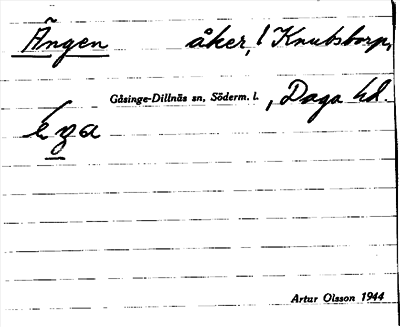 Ängen åker, / Knutstorp,
Gåsinge-Dillnäs sn, Söderm. l. , Daga hd.
Eza
Artur Olsson 1944